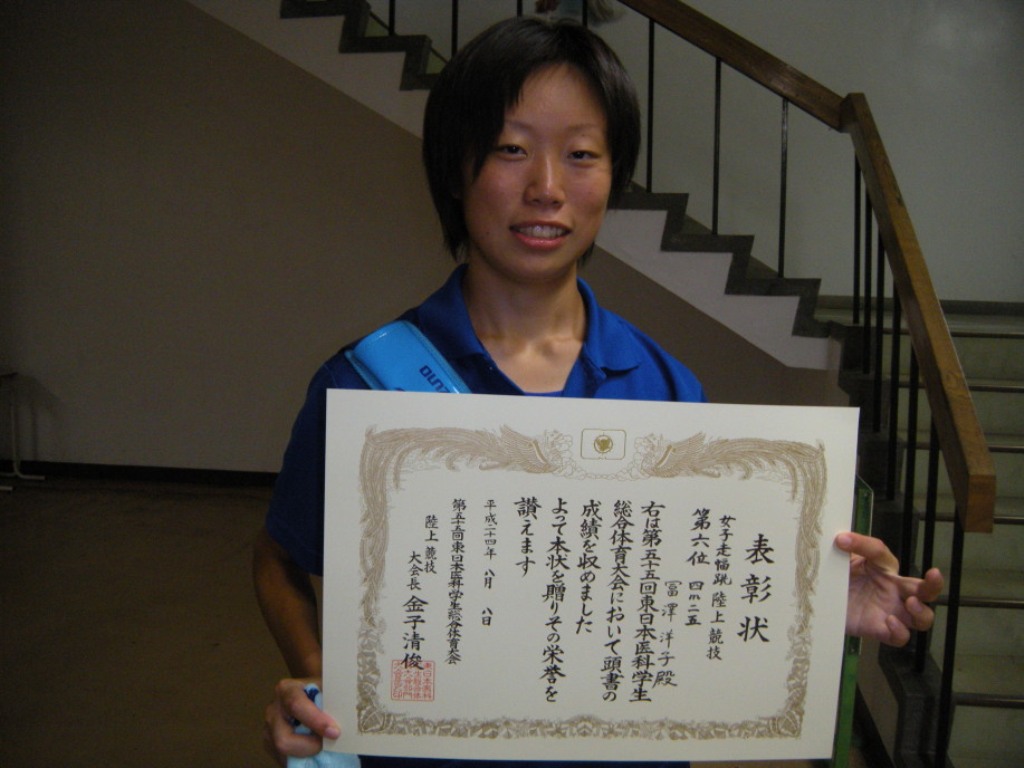 表彰状
女子走幅跳 陸上競技
第六位 四m二五
冨澤洋子殿
右は第五十五回東日本医科学生
総合体育大会において頭書の
成績を収めました
よって本状を贈りその栄誉を
讃えます
平成二十四年 八月 八日
第五十五回東日本医科学生総合体育大会
陸上競技
大会長 金子清俊